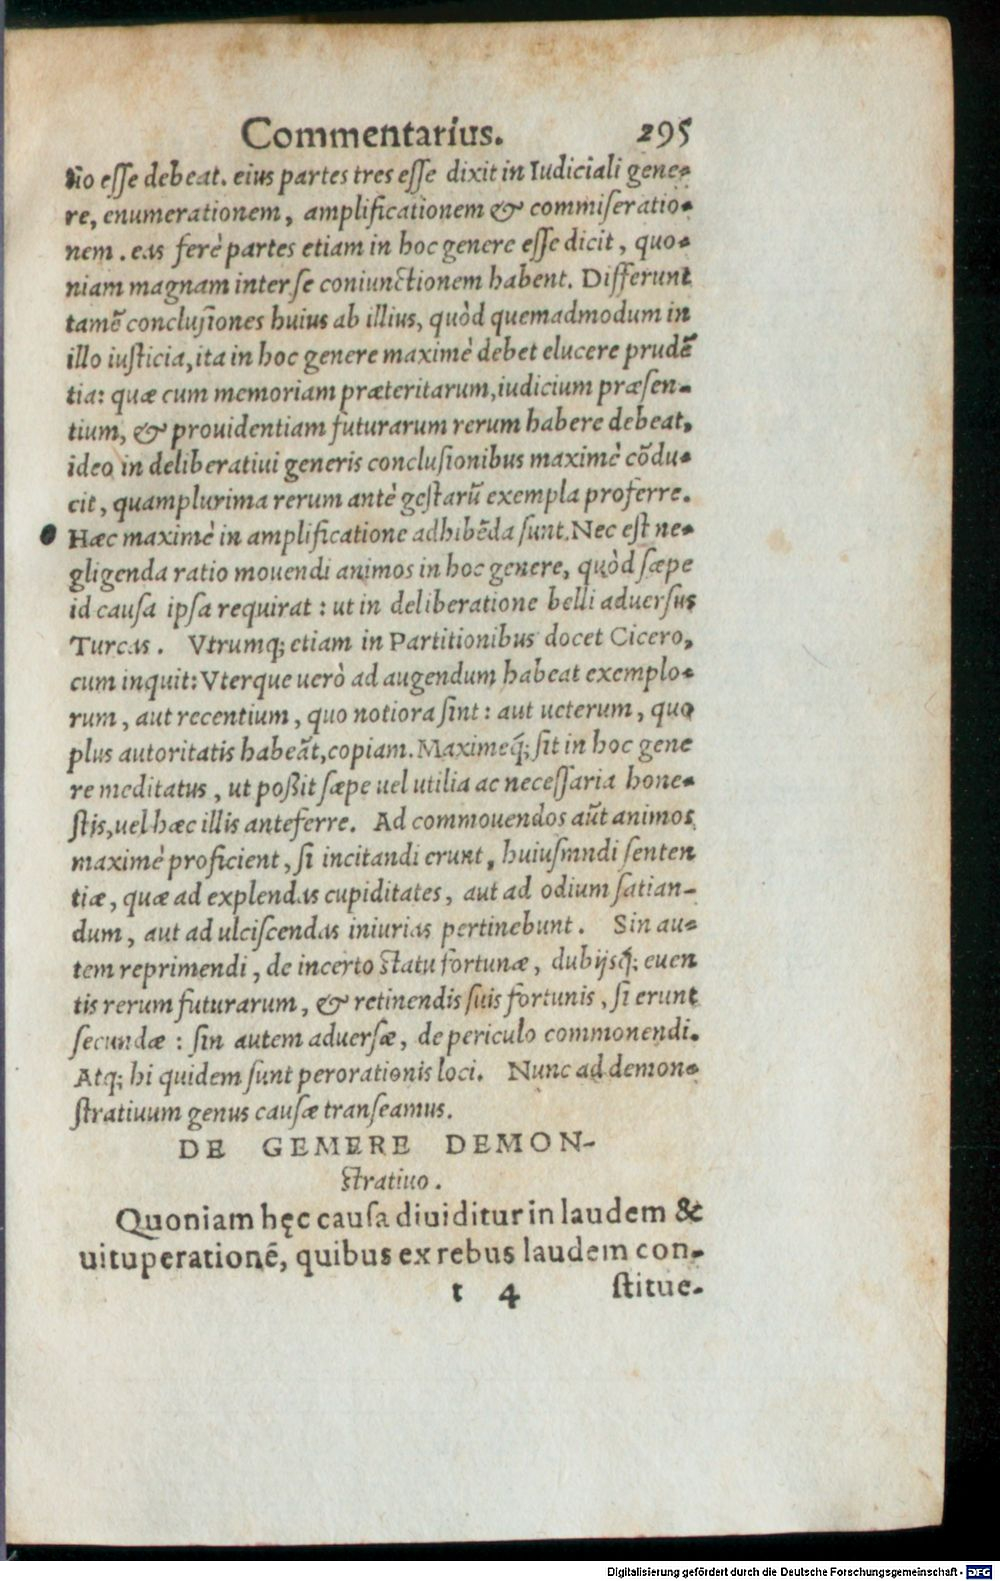 Commentarius. 295
sio esse debeat. eius partes tres esse dixit in Iudiciali gene-
re, enumerationem, amplificationem & commiseratio-
nem. eas ferè partes etiam in hoc genere esse dicit, quo-
niam magnam inter se coniunctionem habent. Differunt
tamē conclusiones huius ab illius, quòd quemadmodum in
illo iusticia, ita in hoc genere maximè debet elucere prudē
tia: quæ cum memoriam præteritarum, iudicium præsen-
tium, & prouidentiam futurarum rerum habere debeat,
ideo in deliberatiui generis conclusionibus maximè cōdu-
cit, quamplurima rerum antè gestarū exempla proferre.
Hæc maximè in amplificatione adhibēda sunt. Nec est ne-
gligenda ratio mouendi animos in hoc genere, quòd sæpe
id causa ipsa requirat: ut in deliberatione belli aduersus
Turcas. Vtrumq; etiam in Partitionibus docet Cicero,
cum inquit: Vterque uerò ad augendum habeat exemplo-
rum, aut recentium, quo notiora sint: aut ueterum, quo
plus autoritatis habeāt, copiam. Maximeq́; sit in hoc gene
re meditatus, ut poßit sæpe uel utilia ac necessaria hone-
stis, uel hæc illis anteferre. Ad commouendos aūt animos
maximè proficient, si incitandi erunt, huiusmndi senten
tiæ, quæ ad explendas cupiditates, aut ad odium satian-
dum, aut ad ulciscendas iniurias pertinebunt. Sin au-
tem reprimendi, de incerto statu fortunæ, dubijsq́; euen
tis rerum futurarum, & retinendis suis fortunis, si erunt
secundæ: sin autem aduersæ, de periculo commonendi.
Atq; hi quidem sunt perorationis loci. Nunc ad demon-
stratiuum genus causæ transeamus.
DE GEMERE DEMON-
stratiuo.
Quoniam hęc causa diuiditur in laudem &
uituperationē, quibus ex rebus laudem con-
t 4 stitue-
Digitalisierung gefördert durch die Deutsche Forschungsgemeinschaft - DFG